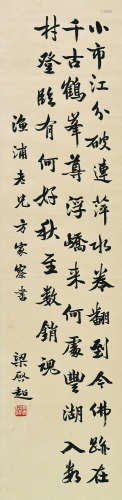 小市江分破連萍水卷翻到今佛跡在
千古鶴峯尊浮嶠來何處豐湖入數
村登臨有何好秋至數銷魂
漁浦老兄方家察書
梁啓超